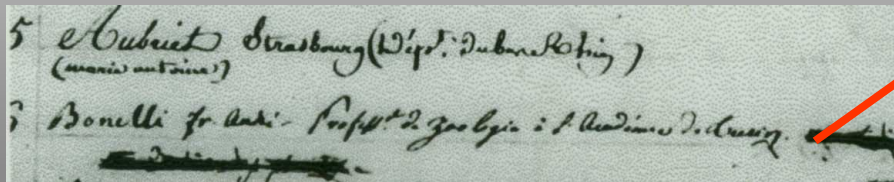 5 Aubriet Strasbourg (Dépt. du bas Rhin)
(marie antoine)
6 Bonelli fr. andré - Profess.r de zoologie à l'Académie de